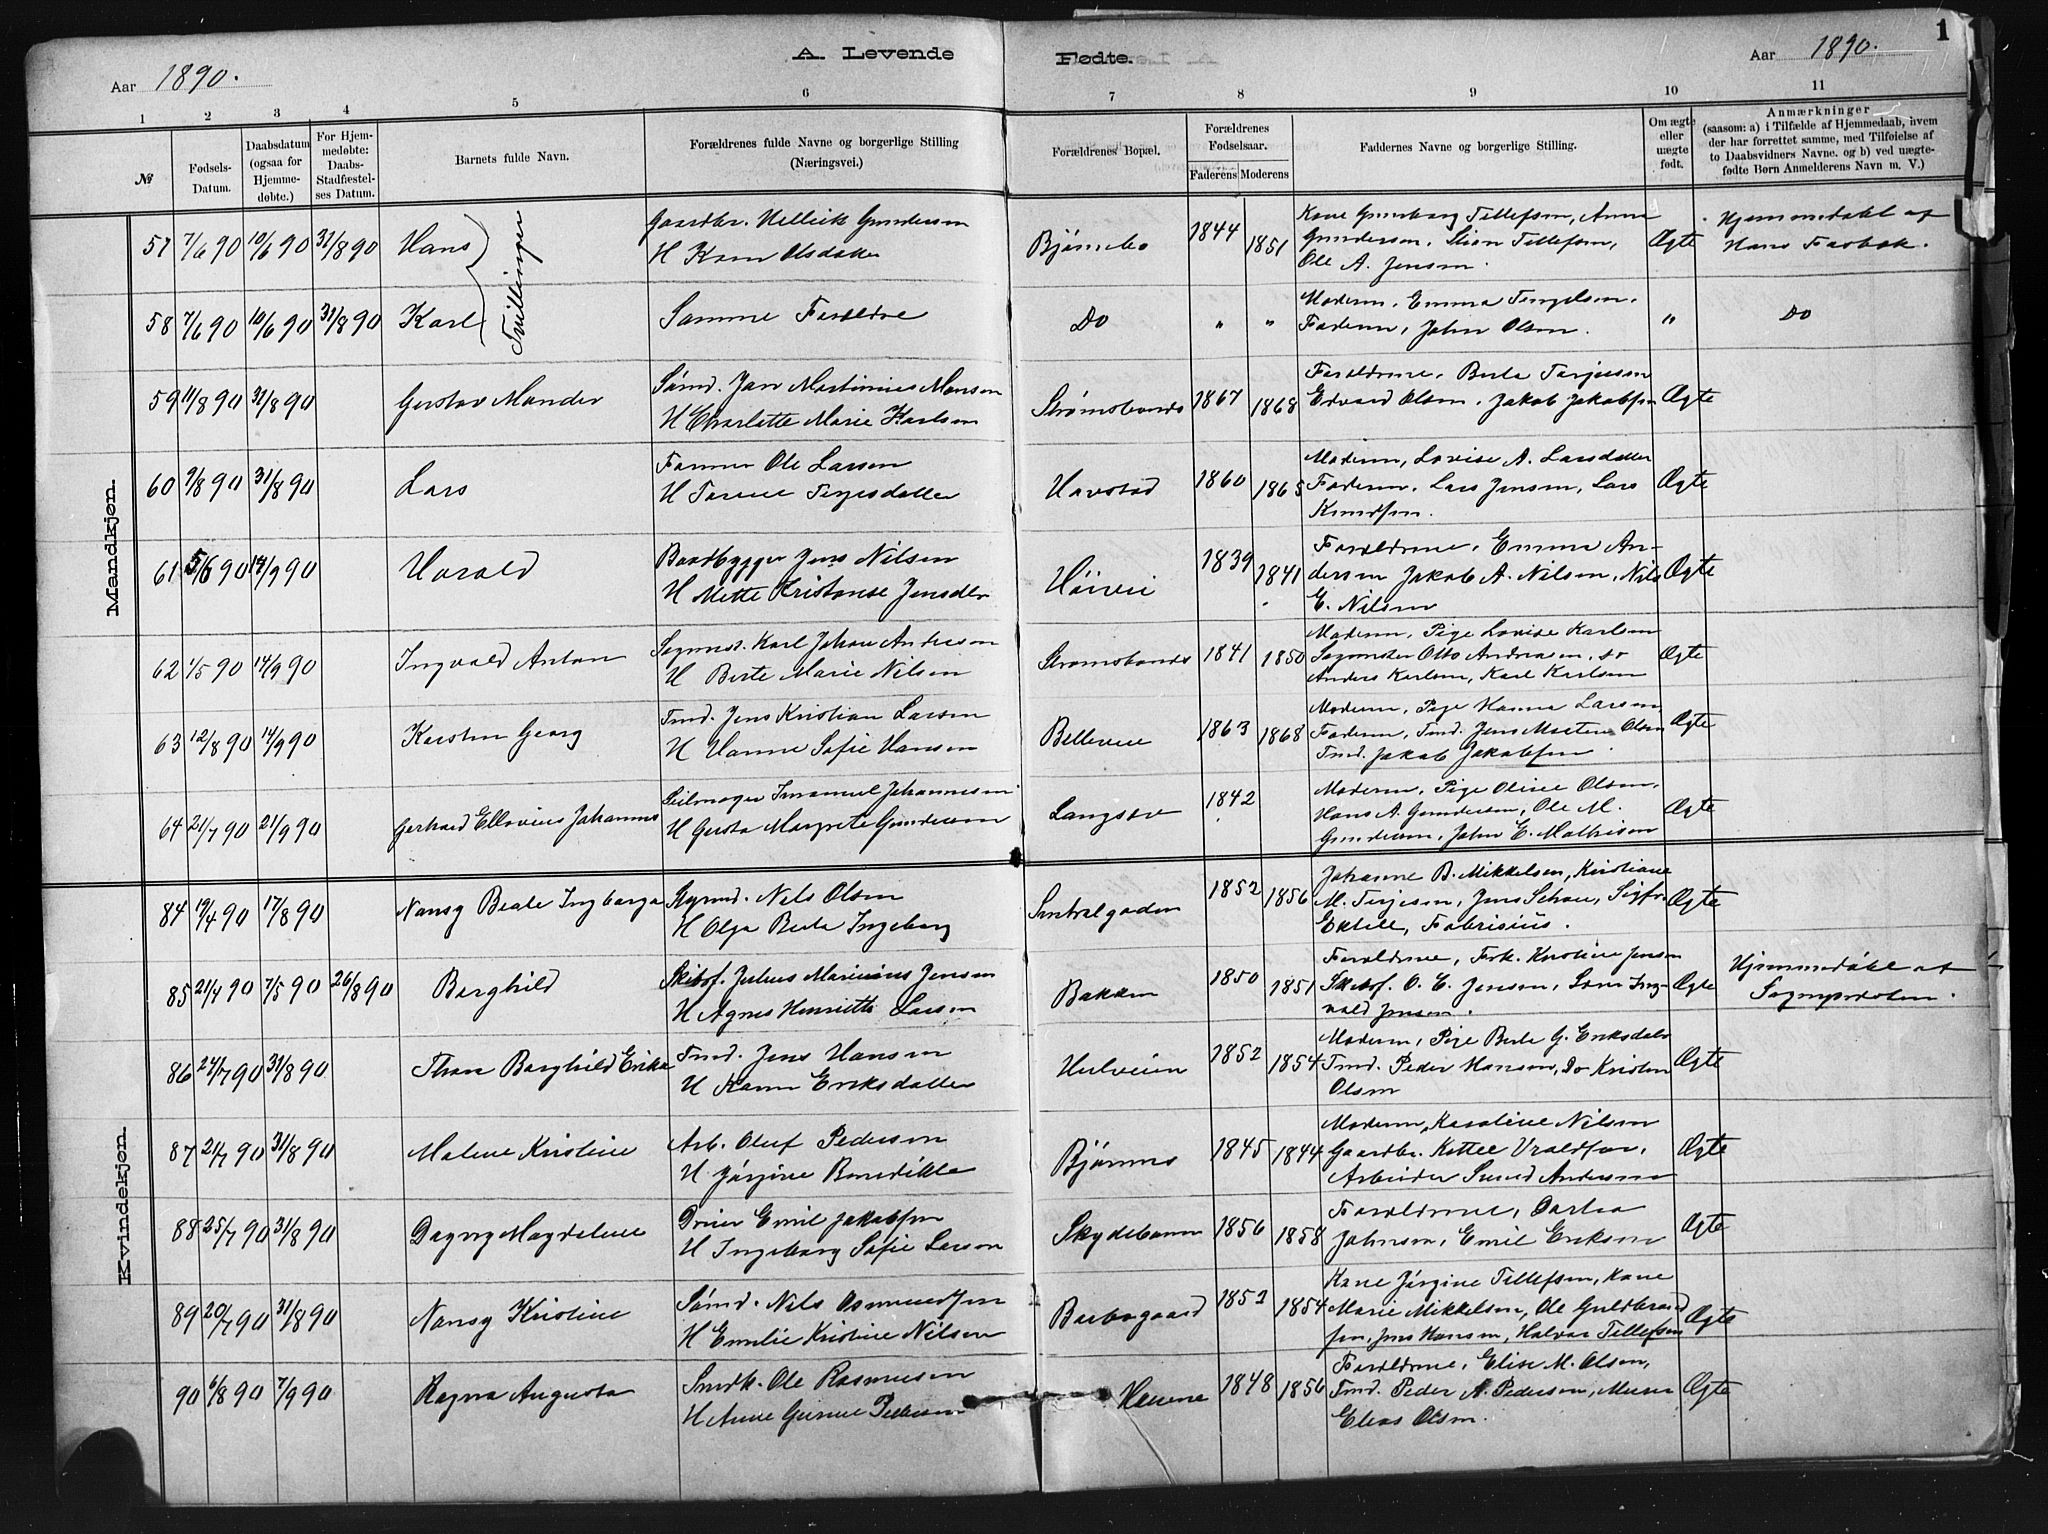 1
A. Levende Fødte.
Aar 1890.
Aar 1890.
1 2 3 4 5 6 7 8 9 10 11
№
Fødsels-
Datum.
Daabsdatum
(ogsaa for
Hjemme-
døbte.)
For Hjem-
medøbte:
Daabs-
Stadfæstel-
ses Datum.
Barnets fulde Navn.
Forældrenes fulde Navne og borgerlige Stilling
(Næringsvei.)
Forældrenes Bopæl.
Forældrenes
Fødselsaar.
Faderens Moderens
Faddernes Navne og borgerlige Stilling.
Om ægte
eller
uægte
født.
Anmærkninger
(saasom: a) i Tilfælde af Hjemmedaab, hvem
der har forrettet samme, med Tilføielse af
to Daabsvidners Navne. og b) ved uægte-
fødte Børn Anmelderens Navn m. V.)
Mandkjøn.
57 7/6 90 10/6 90 31/8 90 Hans
Tvillinger
Gaardbr. Hellik Gundersen
H Karen Olsdatter
Bjørnebo 1844 1851
Kone Gunborg Tellefsen, Anna
Gundersen, Stian Tellefsen,
Ole A. Jensen.
Ægte
Hjemmedøbt af
Hans Farbak.
58 7/6 90 10/6 90 31/8 90 Karl
Samme Forældre
Do " "
Moderen, Emma Tengelsen,
Faderen, John Olsen.
"
Do
59 11/8 90 31/8 90 Gustav Mander
Sømd. Jan Martinius Monsen
H Charlotte Marie Karlsen
Strømsbonds 1867 1868
Forældrene, Berte Tarjesen
Edvard Olsen, Jakob Jakobsen
Ægte
60 9/8 90 31/8 90 Lars
Farmer Ole Larsen
H Tarene Terjesdatter
Havstad 1860 1865
Moderen, Lovise A. Larsdatter
Faderen, Lars Jensen, Lars
Knudsen.
Ægte
61 5/6 90 14/9 90 Harald
Baadbygger Jens Nilsen
H Mette Kristanse Jensdtr
Høiveie 1839 1841
Forældrene, Emma An-
dersen Jakob A. Nilsen, Nils
E. Nilsen
Ægte
62 1/5 90 14/9 90 Ingvald Anton
Sagmst. Karl Johan Andresen
H Berte Marie Nilsen
Strømsbonds 1841 1850
Moderen, Pige Lovise Karlsen
Sagmster Otto Andreasen, do
Anders Karlsen, Karl Karlsen
Ægte
63 12/8 90 14/9 90 Karsten Georg
Tmd. Jens Kristian Larsen
H Hanne Sofie Hansen
Belleveie 1863 1868
Moderen, Pige Hanna Larsen
Faderen, Tmd. Jens Morten Olsen
Tmd. Jakob Jakobsen
Ægte
64 21/7 90 21/9 90 Gerhard Ellovius Johannes
Seilmager Imanuel Johannesen
H Gusta Margrete Gundersen
Langsæv 1842
Moderen, Pige Oline Olsen,
Hans A. Gundersen, Ole M.
Gundersen, John E. Mathisen
Ægte
Kvindekjøn.
84 19/4 90 17/8 90 Nansy Beate Ingborga
Styrmd. Nils Olsen
H Olga Berta Ingeborg
Sentralgaden 1852 1856
Johanne B. Mikkelsen, Kristiane
M. Terjesen, Jens Schou, Sigfr.
Ektell, Fabrisius.
Ægte
85 21/4 90 7/5 90 26/8 90 Borghild
Skibsf. Julius Marinius Jensen
H Agnes Henriette Larsen
Bakken 1850 1851
Forældrene, Frk. Kristine Jensen
Skibsf. O. E. Jensen, Sønn Ing-
vald Jensen.
Ægte
Hjemmedøbt af
Sognepresten.
86 24/7 90 31/8 90 Thora Borghild Erika
Tmd. Jens Hansen
H Karen Eriksdatter
Hulveien 1852 1854
Moderen, Pige Berte G. Eriksdatr
Tmd. Peder Hansen, Do Kristen
Olsen
Ægte
87 24/7 90 31/8 90 Malene Kristine
Arb. Oluf Pedersen
H Jørgine Benedikte
Bjørnnes 1845 1844
Moderen, Karoline Nilsen
Gaardbr. Kittel Vraldsen,
Arbeider Svend Andersen
Ægte
88 25/7 90 31/8 90 Dagny Magdelene
Driver Emil Jakobsen
H Ingeborg Sofie Larsen
Skydebanen 1856 1858
Forældrene, Dortea
Johnsen, Emil Eriksen
Ægte
89 20/7 90 31/8 90 Nansy Kristine
Sømd. Nils Osmundsen
H Emilie Kristine Nilsen
Barbogaard 1853 1854
Kone Jørgine Tellefsen, Kone
Marie Mikkelsen, Ole Guldbrand
sen, Jens Hansen, Halvor Tellefsen
Ægte
90 6/8 90 7/9 90 Ragna Augusta
Smdk. Ole Rasmusen
H Anne Gurine Pedersen
Havene 1848 1856
Forældrene, Elise M. Olsen,
Tmd. Peder A. Pedersen, Murer
Elias Olsen.
Ægte